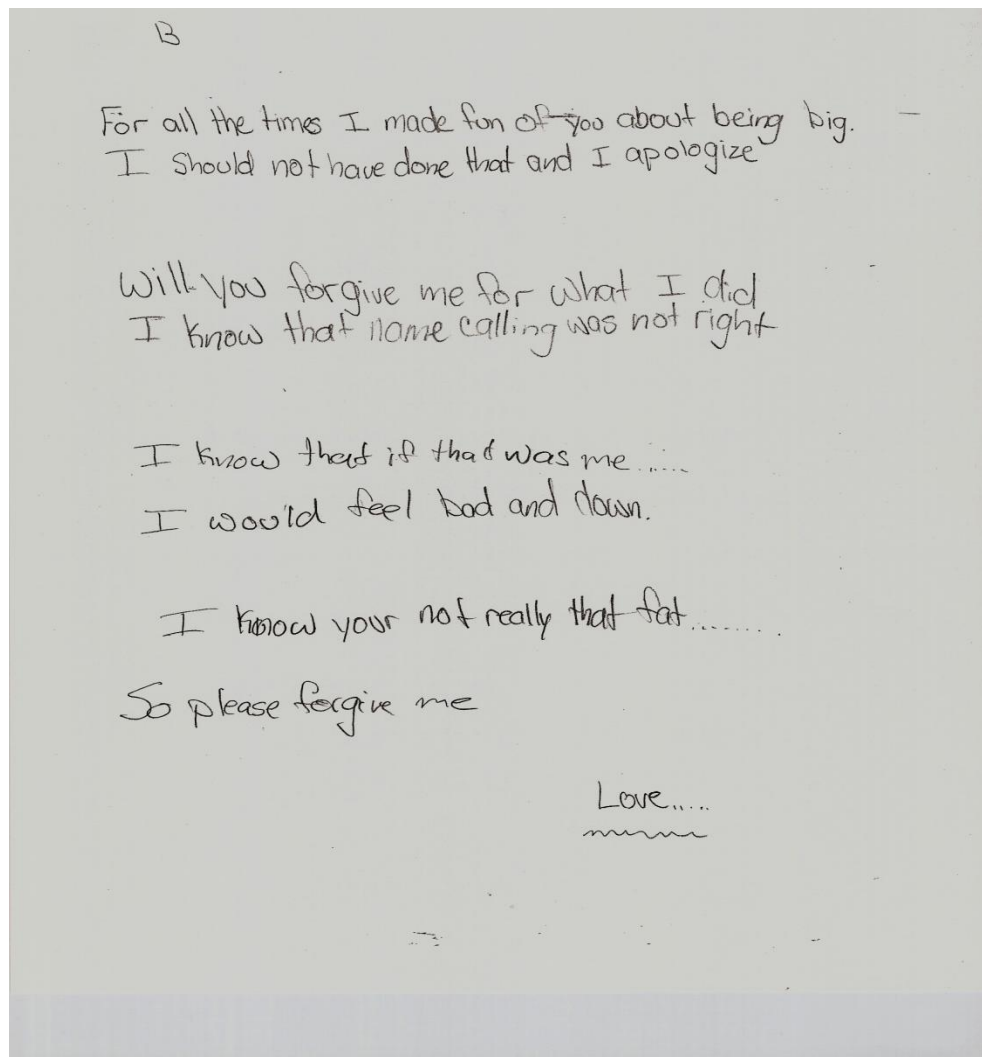 B
For all the times I made fun of you about being big.
I Should not have done that and I apologize
Will you forgive me for what I did
I know that name calling was not right
I know that if that was me......
I would feel bad and down.
I know your not really that fat........
So please forgive me
Love.....